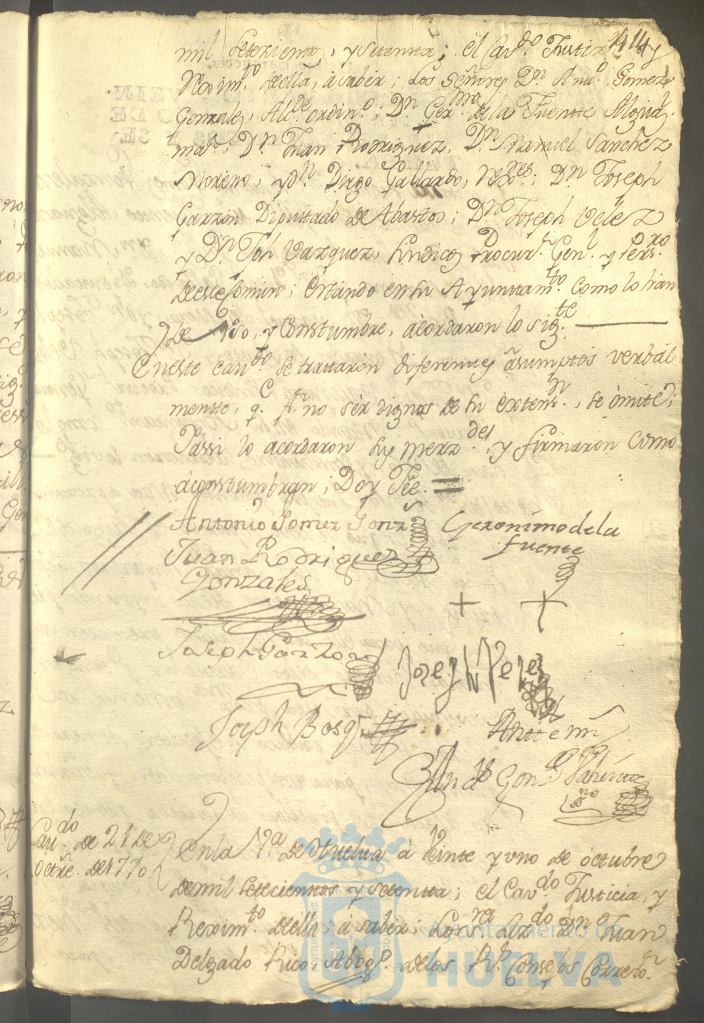 mil Setezientos, y Setenta; el Cav.do Justizia, y
Rexim.to de ella, à saber; los Señores Dn. Ant.o Gomez
Gonzalez, Alc.de ordin.o; Dn. Ger.mo de la Fuente Alguaz.l
may.r; Dn. Juan Rodriguez, Dn. Manuel Sanchez
Moreno, y Dn. Diego Gallardo, Rex.res; Dn. Joseph
Garzon Diputado de Abastos; Dn. Joseph Velez
y Dn. Jph Vazquez, Sindico Procur.r Gen.l y Pers.ro
de este Comun; Estando en su Ayuntam.to como lo han
de uso, y Constumbre, acordaron lo sig.te
En este cav.do se trattaron diferentes asumptos verbal
mente, q.e p.r no ser dignos de su extens.n, se omite;
Y assi lo acordaron sus merz.des, y firmaron como
aconstumbran, Doy Fée.=
Antonio Gomez Gonz.s Geronimo de la
fuente
Juan Rodriguez
Gonzales
+ +
Joseph Garzon Joseph Velez
Joseph Basq.z Antte mi
And.s Gon.z
s.no
Cav.do de 21 de
octre. de 1770
En la V.a de Huelva à Veinte y uno de octubre
de mil Setecientos y Setenta; el Cav.do Justicia, y
Rexim.to de ella; à saber; Liz.do Dn. Juan
Delgado Rico, Abog.do de los R.s Consejos Correx.or
Ayuntamiento de
HUELVA